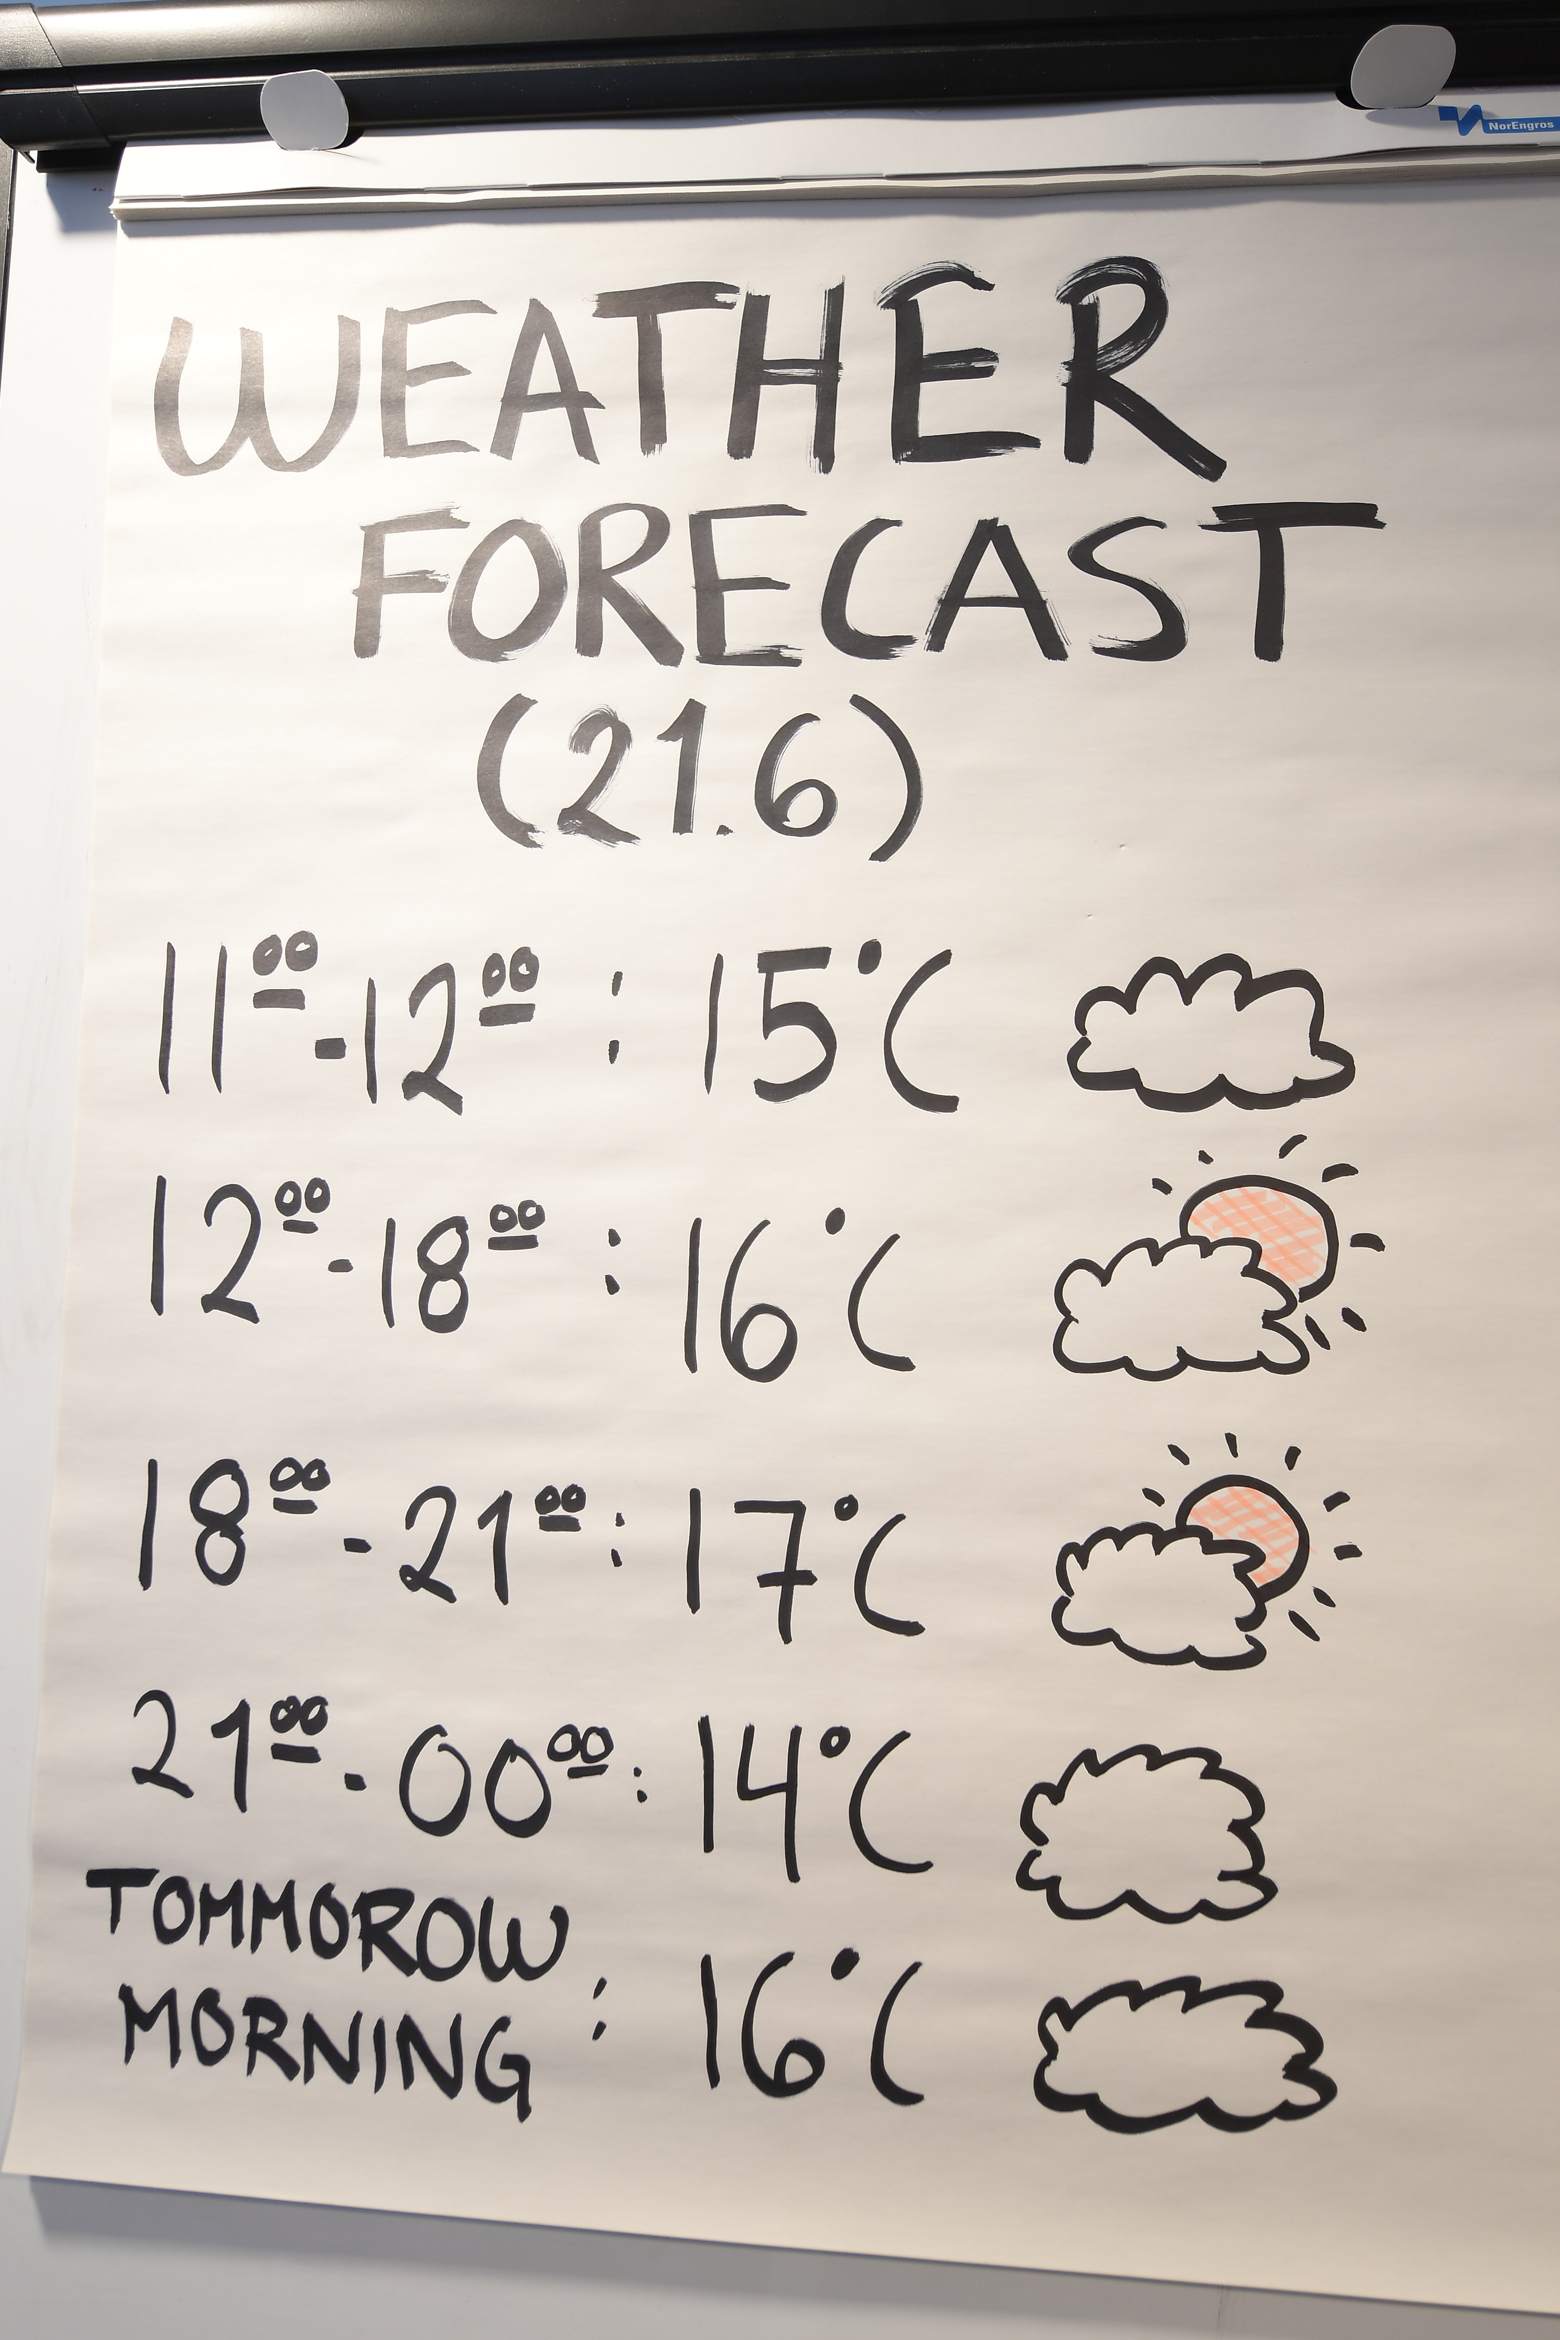 NorEngros
WEATHER
FORECAST
(21.6)
11⁰⁰-12⁰⁰ : 15°C
12⁰⁰-18⁰⁰ : 16°C
18⁰⁰-21⁰⁰ : 17°C
21⁰⁰-00⁰⁰ : 14°C
TOMMOROW
MORNING : 16°C